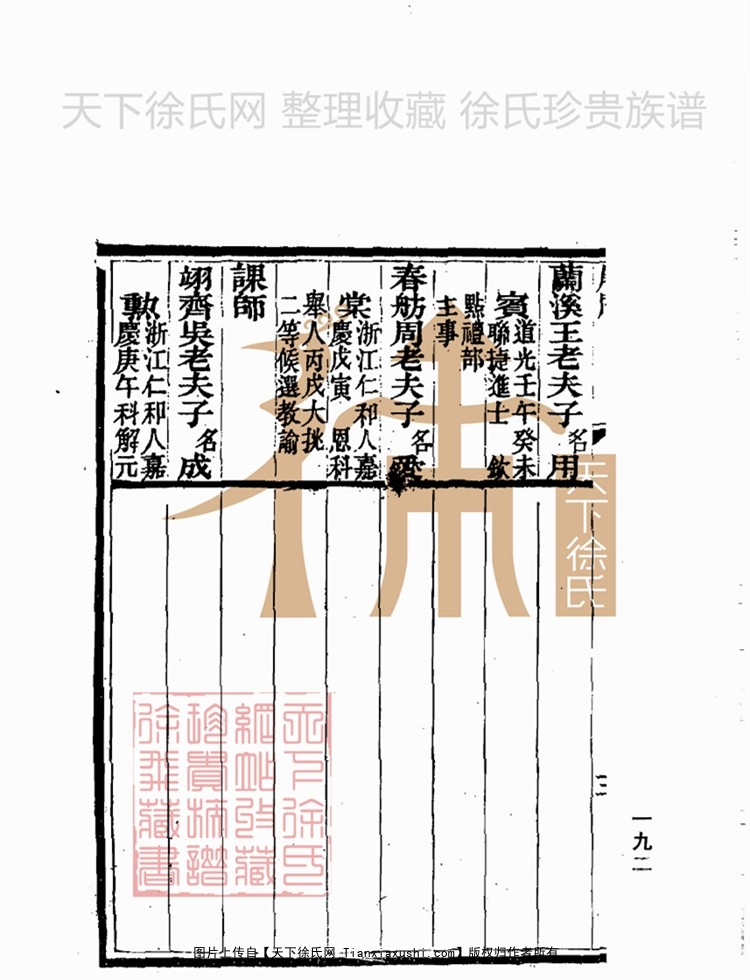 天下徐氏网 整理收藏 徐氏珍贵族谱
蘭溪王老夫子名用
賓道光壬午癸未
聯捷進士 欽
點禮部
主事
春舫周老夫子名
棠浙江仁和人嘉
慶戊寅 恩科
舉人丙戌大挑
二等候選教諭
課師
翊齊吳老夫子名成
勲浙江仁和人嘉
慶庚午科解元
天下徐氏
三
一九二
天下徐氏
網站收藏
珍貴族譜
徐氏藏書
图片上传自【天下徐氏网 Tianxiaxushi.com】版权归作者所有